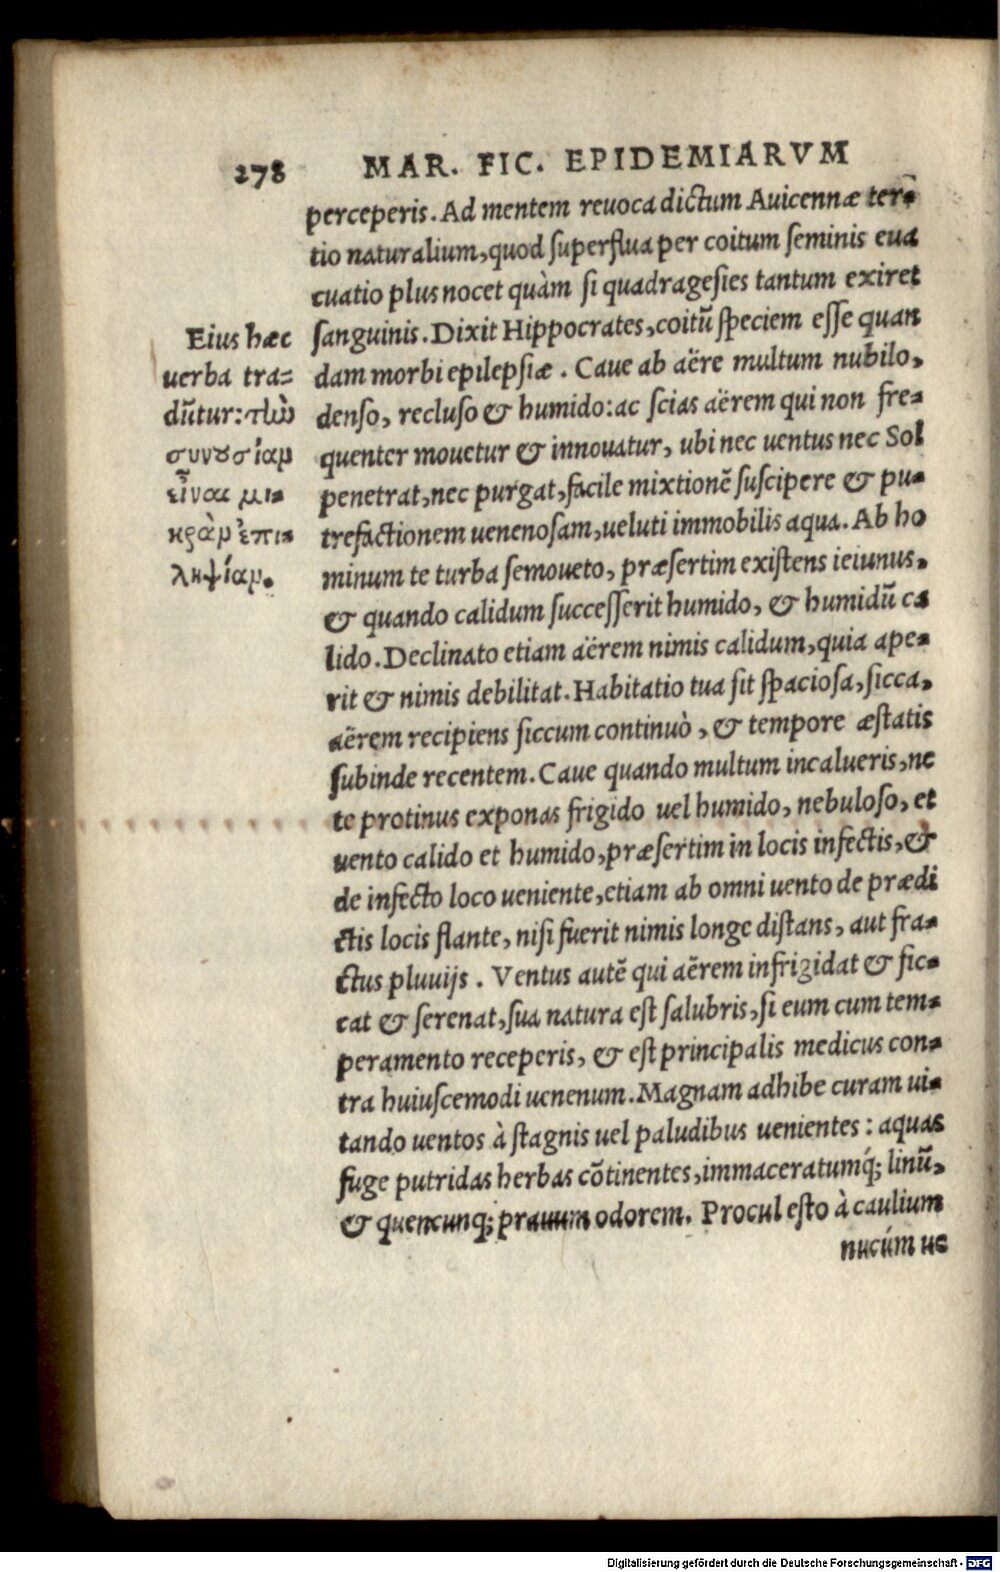 278 MAR. FIC. EPIDEMIARVM
perceperis. Ad mentem reuoca dictum Auicennæ ter-
tio naturalium, quod superflua per coitum seminis eua
cuatio plus nocet quàm si quadragesies tantum exiret
sanguinis. Dixit Hippocrates, coitũ speciem esse quan
dam morbi epilepsiæ. Caue ab aëre multum nubilo,
denso, recluso & humido: ac scias aërem qui non fre-
quenter mouetur & innouatur, ubi nec uentus nec Sol
penetrat, nec purgat, facile mixtionẽ suscipere & pu-
trefactionem uenenosam, ueluti immobilis aqua. Ab ho
minum te turba semoueto, præsertim existens ieiunus,
& quando calidum successerit humido, & humidũ ca
lido. Declinato etiam aërem nimis calidum, quia ape-
rit & nimis debilitat. Habitatio tua sit spaciosa, sicca,
aërem recipiens siccum continuò, & tempore æstatis
subinde recentem. Caue quando multum incalueris, ne
te protinus exponas frigido uel humido, nebuloso, et
uento calido et humido, præsertim in locis infectis, &
de infecto loco ueniente, etiam ab omni uento de prædi
ctis locis flante, nisi fuerit nimis longe distans, aut fra-
ctus pluuijs. Ventus autẽ qui aërem infrigidat & sic-
cat & serenat, sua natura est salubris, si eum cum tem-
peramento receperis, & est principalis medicus con-
tra huiuscemodi uenenum. Magnam adhibe curam ui-
tando uentos à stagnis uel paludibus uenientes: aquas
fuge putridas herbas cõtinentes, immaceratumq́; linũ,
& quencunq; prauum odorem. Procul esto à caulium
nucúm ue
Eius hæc
uerba tra=
dũtur: τὼ
συνουσίαν
εἶναι μι-
κρὰν ἐπι-
ληψίαν.
Digitalisierung gefördert durch die Deutsche Forschungsgemeinschaft - DFG